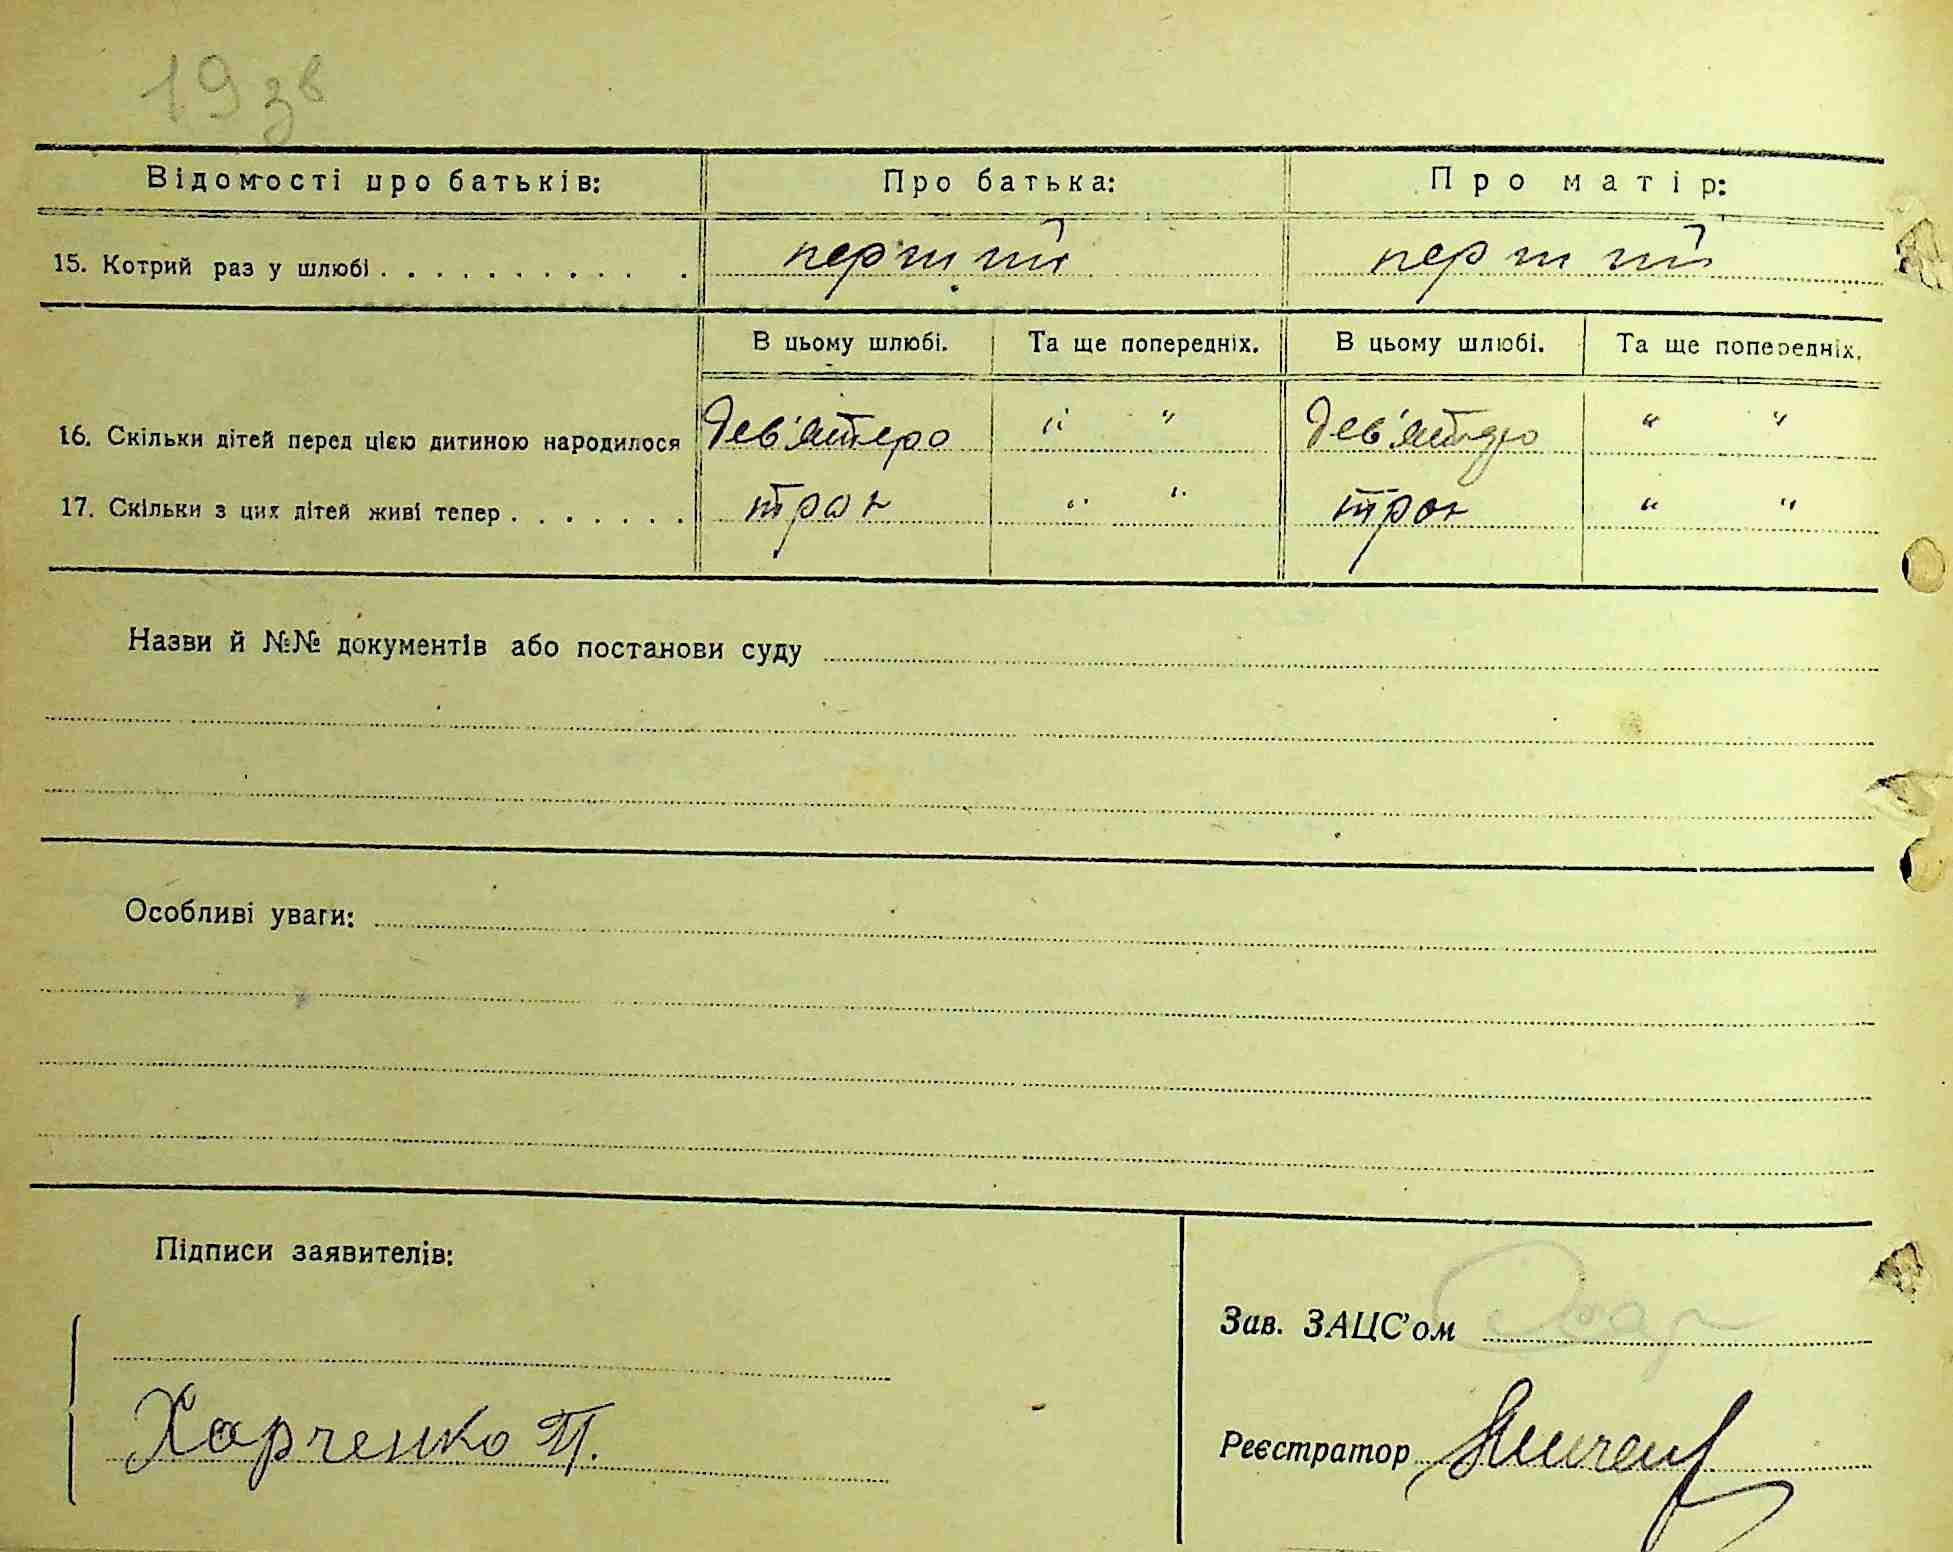 19 зв
Відомості про батьків: Про батька: Про матір:
15. Котрий раз у шлюбі . . . . . . . . . . . . перший перший
В цьому шлюбі. Та ще попередніх. В цьому шлюбі. Та ще попередніх.
16. Скільки дітей перед цією дитиною народилося Дев'ятеро " " Дев'ятеро " "
17. Скільки з цих дітей живі тепер . . . . . . . троє " " троє " "
Назви й №№ документів або постанови суду
Особливі уваги:
Підписи заявителів:
Зав. ЗАЦС'ом
Харченко П.
Реєстратор